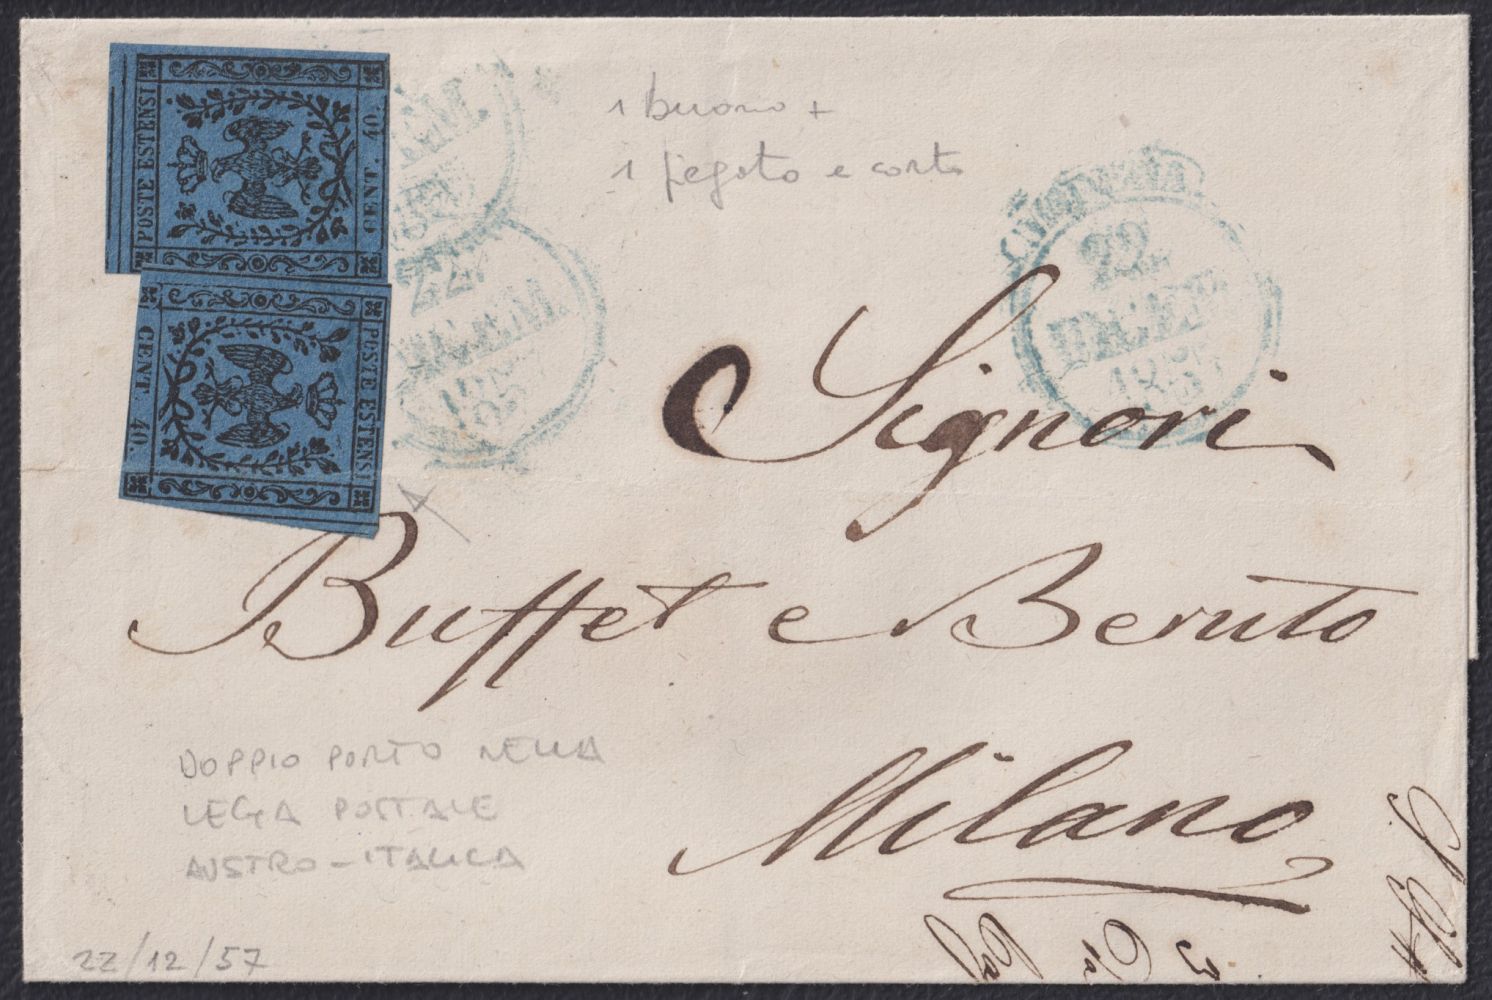 POSTE ESTENSI
CENT. 40.
POSTE ESTENSI
CENT. 40.
1 buono +
1 piegato e corto
22
DICEM.
22
DECEM.
1857
Signori
Buffet e Beruto
Milano
DOPPIO PORTO NELLA
LEGA POSTALE
AUSTRO-ITALICA
22/12/57